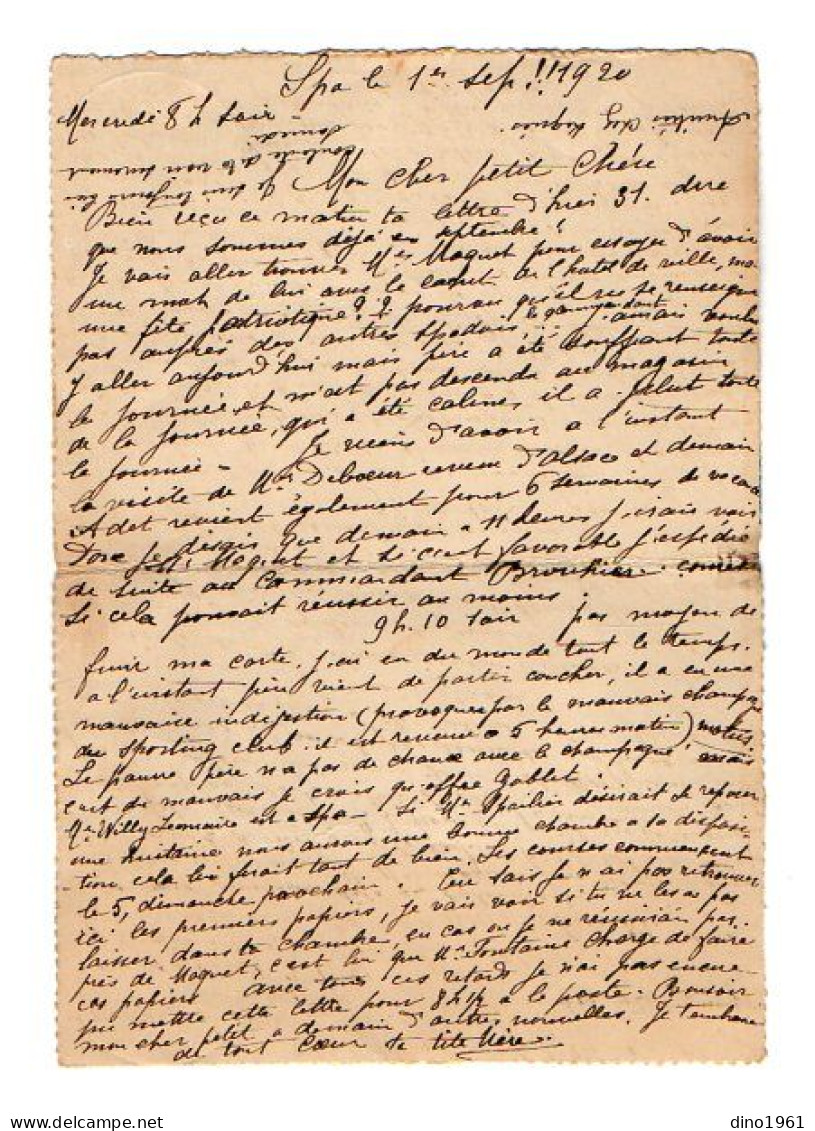 Spa le 1er Sep!! 1920
Mercredi 8 h soir
Mon cher petit Chéri
Bien reçu ce matin ta lettre d'hier 31. dire
que nous sommes déjà en septembre!
Je vais aller trouver Mr Maquet pour essayer d'avoir
un mot de lui avec le cachet de l'hotel de ville, ma
une fête patriotique?? pourvu qu'il ne se renseigne
pas auprès des autres Spadois!!! j'aurais voulu
y aller aujourd'hui mais père a été souffrant toute
la journée et n'est pas descendu au magasin
de la journée, qui a été calme, il a plut toute
la journée - Je viens d'avoir a l'instant
la visite de Mr Deboeur revenu d'alsace et demain
Adet revient également pour 6 semaines de vacance
Donc je disais que demain a 11 heures j'irais voir
Mr Maquet et si c'est favorable j'expédie
de suite au Commandant
Si cela pouvait réussir au moins
9 h. 10 soir pas moyen de
finir ma carte, j'ai eu du monde tout le temps.
a l'instant père vient de partir coucher, il a eu une
mauvaise indigestion (provoquée par le mauvais champagne
du Sporting club. il est revenu a 5 heures matin) motus.
Le pauvre père n'a pas de chance avec le champagne mais
c'est de mauvais je crois qu'offre Goblet.
Mr Willy Lemaire est a Spa - Si Mr désirait se reposer
une huitaine nous aurions une bonne chambre a sa disposi
-tion cela lui ferait tant de bien. Les courses commencent
le 5, dimanche prochain. Tu sais je n'ai pas retrouver
ici les premiers papiers, je vais voir si tu ne les a pas
laisser dans ta chambre, en cas ou je ne réussirais pas
près de Maquet, c'est lui que Mr Fontaine charge de faire
ces papiers avec tous ces retards je n'ai pas encore
pu mettre cette lettre pour 8h1/4 a la poste. Bonsoir
mon cher petit a demain d'autres nouvelles. Je t'embrasse
de tout coeur ta tite Mère.